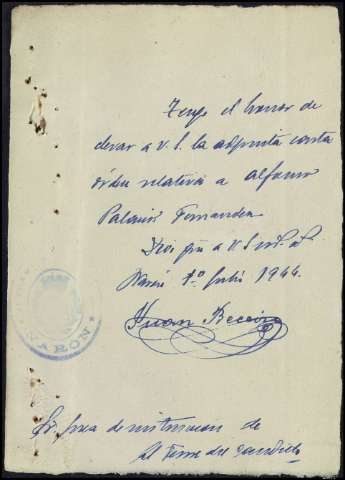 Tengo el honor de
elevar a V.S. la adjunta carta
órden relativa a Alfonso
Palacio Fernandez
Dios gue a V.S. m. a.
Narón 1º Julio 1944.
Juan Beceiro
NARÓN
Sr. Juez de instruccion de
El Ferrol del Caudillo